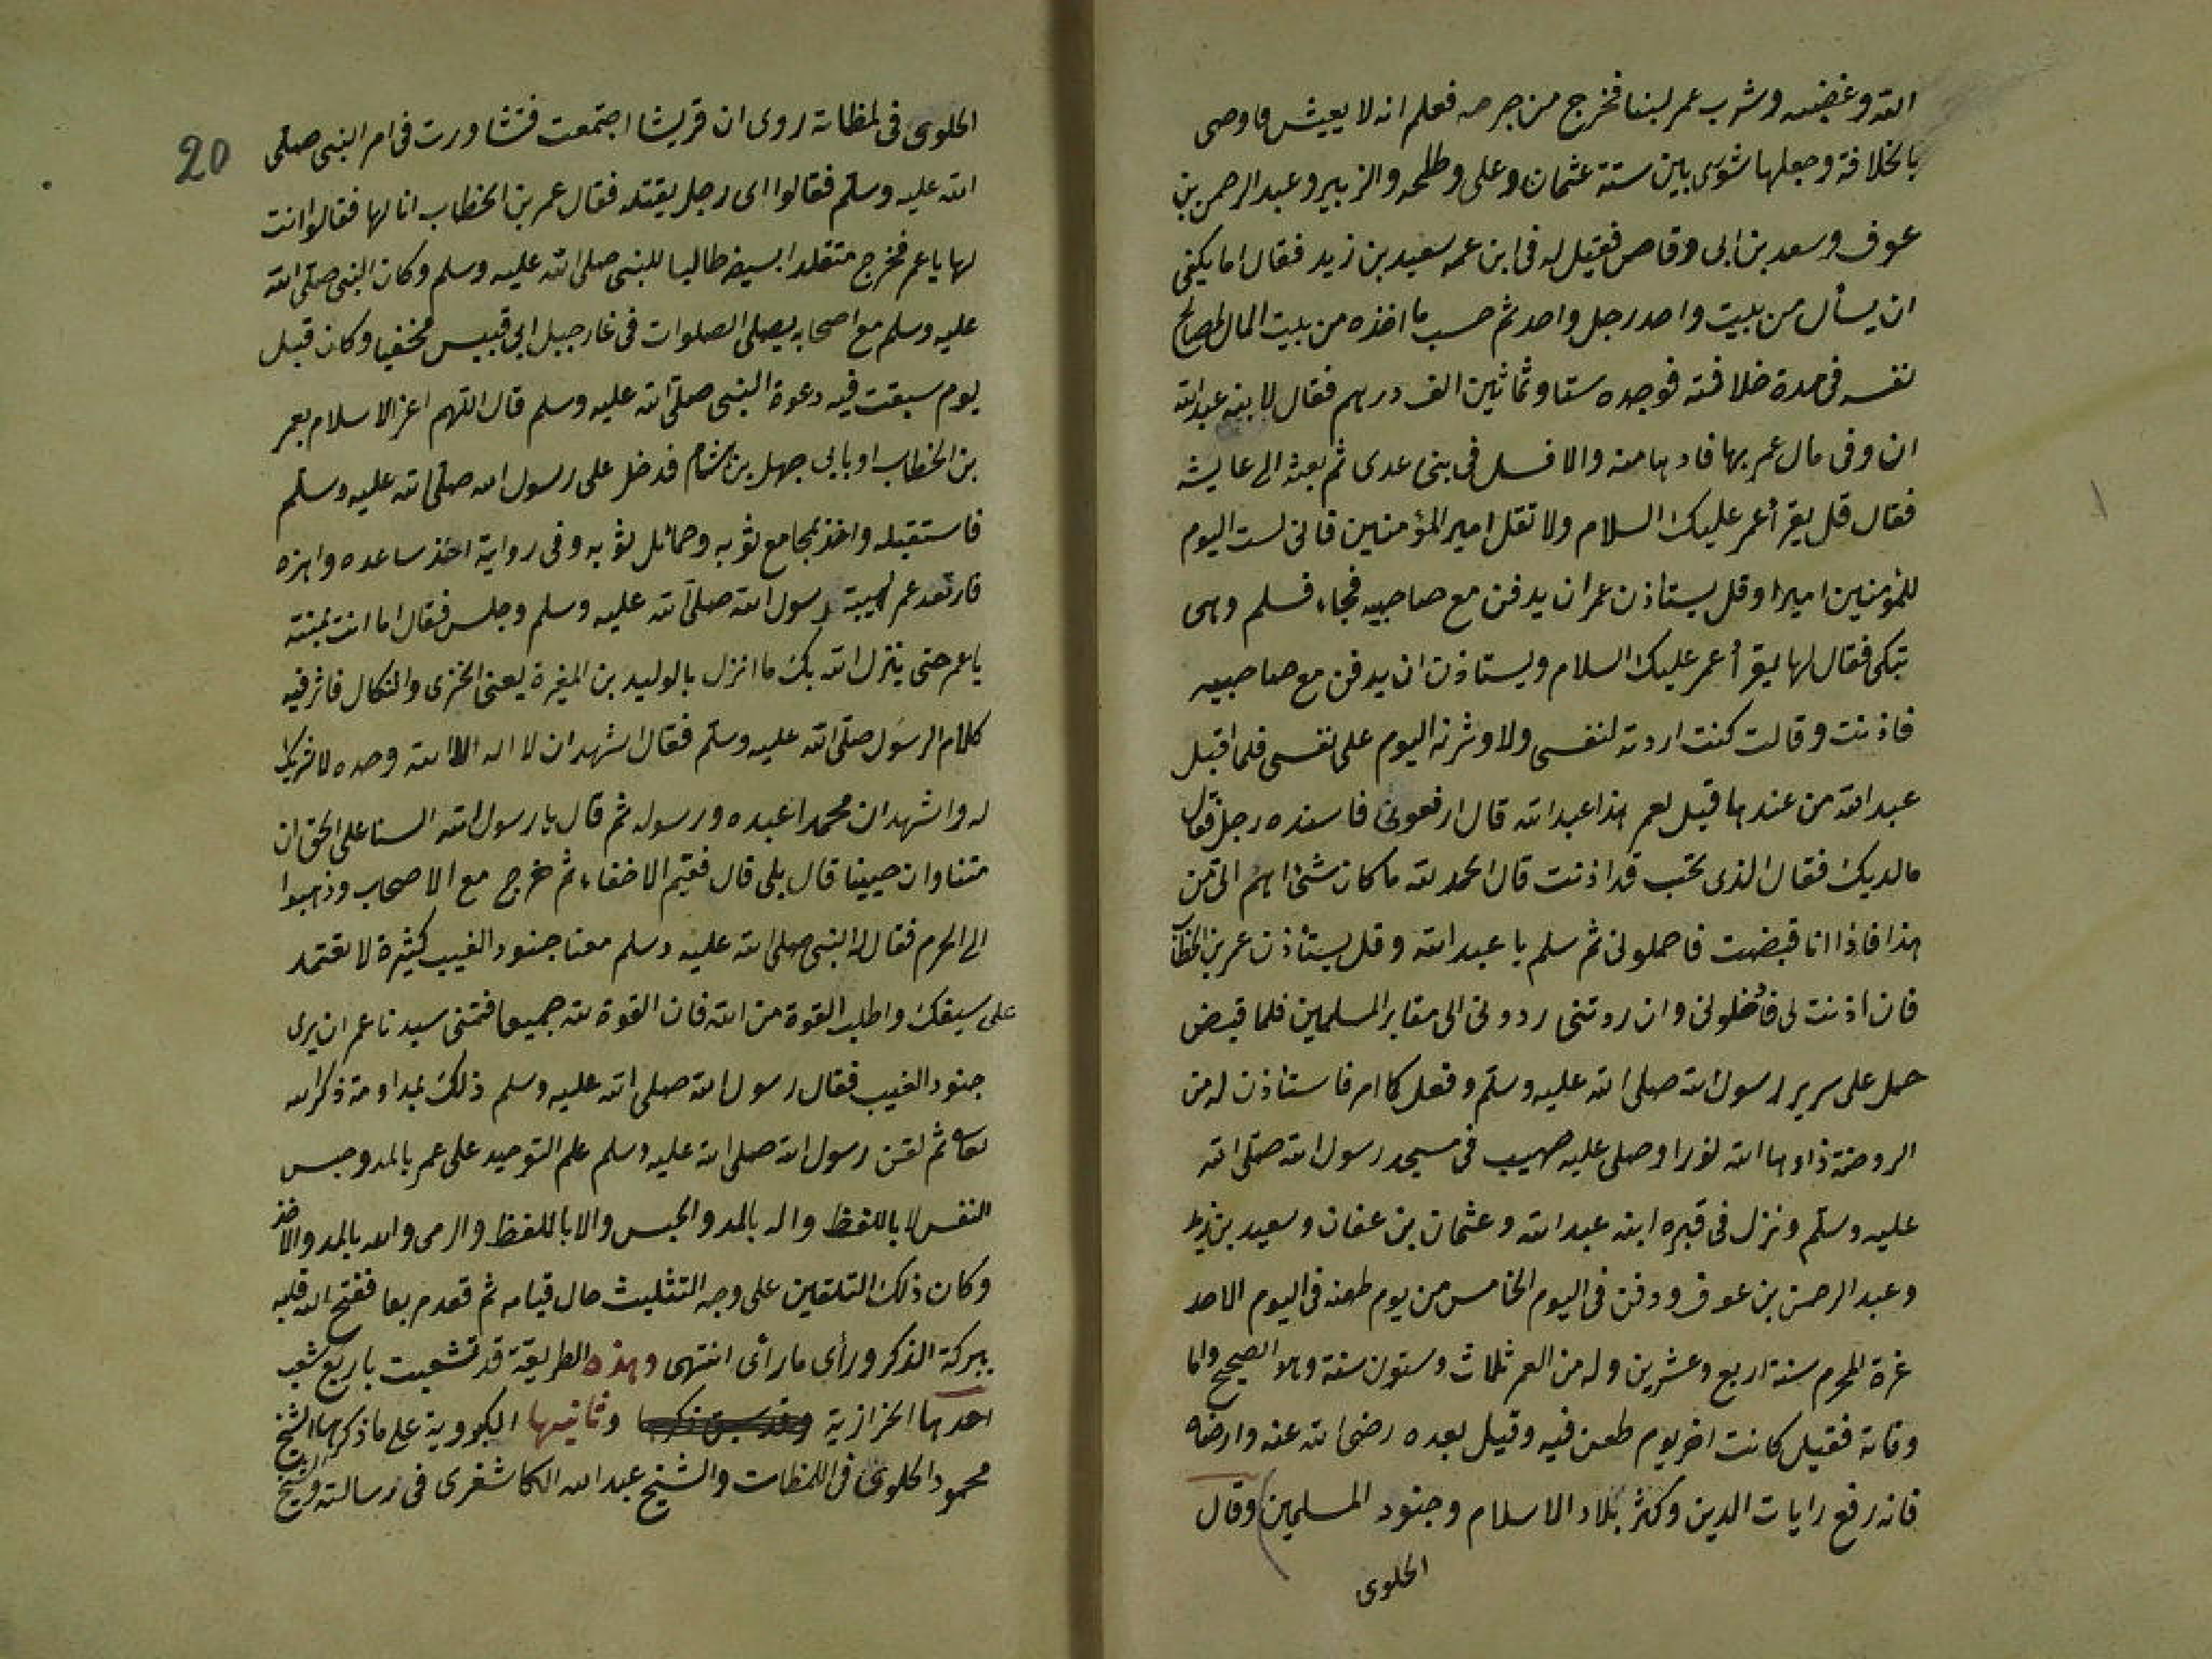 الله وغضبه وشرب عمر لبنا فخرج من جرحه فعلم انه لا يعيش فاوصى
بالخلافة وجعلها شورى بين ستة عثمان وعلى وطلحه والزبير وعبد الرحمن بن
عوف وسعد بن ابى وقاص فقيل له فى ابن عمه سعيد بن زيد فقال اما يكفى
ان يسأل من بيت واحد رجل واحد ثم حسب ما اخذه من بيت المال لمصالح
نفسه فى مدة خلافته فوجده ستا وثمانين الف درهم فقال لابنه عبد الله
ان وفى مال عمر بها فادها منه والا فسل فى بنى عدى ثم بعثه الى عايشه
فقال قل يقرأ عمر عليك السلام ولا تقل امير المؤمنين فانى لست اليوم
للمؤمنين اميرا وقل يستاذن عمر ان يدفن مع صاحبيه فجاء فسلم وهى
تبكى فقال لها يقرأ عمر عليك السلام ويستاذن ان يدفن مع صاحبيه
فاذنت وقالت كنت اردته لنفسى ولاوثرنه اليوم على نفسى فلما اقبل
عبد الله من عندها قيل لعمر هذا عبد الله قال ارفعونى فاسنده رجل فقال
مالديك فقال الذى تحب قد اذنت قال الحمد لله ما كان شئ اهم الى من
هذا فاذا انا قبضت فاحملونى ثم سلم يا عبد الله وقل يستأذن عمر بن الخطاب
فان اذنت لى فأدخلونى وان ردتنى ردونى الى مقابر المسلمين فلما قبض
حمل على سرير رسول الله صلى الله عليه وسلم وفعل كما امر فاستاذن له من
الروضة زادها الله نورا وصلى عليه صهيب فى مسجد رسول الله صلى الله
عليه وسلم ونزل فى قبره ابنه عبد الله وعثمان بن عفان وسعيد بن زيد
وعبد الرحمن بن عوف ودفن فى اليوم الخامس من يوم طعنه فى اليوم الاحد
غرة المحرم سنة اربع وعشرين وله من العمر ثلاث وستون سنة وهو الصحيح واما
وفاته فقيل كانت اخر يوم طعن فيه وقيل بعده رضى الله عنه وارضاه
فانه رفع رايات الدين وكثر بلاد الاسلام وجنود المسلمين وقال
الحلوى
20
الحلوى فى لمظاته روى ان قريشا اجتمعت فتشاورت فى امر النبى صلى
الله عليه وسلم فقالوا اى رجل يقتله فقال عمر بن الخطاب انا لها فقالوا انت
لها يا عمر فخرج متقلدا بسيفه طالبا للنبى صلى الله عليه وسلم وكان النبى صلى الله
عليه وسلم مع اصحابه يصلى الصلوات فى غار جبل ابى قبيس مخفيا وكان قبل
يوم سبقت فيه دعوة النبى صلى الله عليه وسلم قال اللهم اعز الاسلام بعمر
بن الخطاب او بابى جهل بن هشام فدخل على رسول الله صلى الله عليه وسلم
فاستقبله واخذ بمجامع ثوبه وحمائل ثوبه وفى رواية اخذ ساعده وهزه
فارتعد عمر لهيبة رسول الله صلى الله عليه وسلم وجلس فقال اما انت بمنته
يا عمر حتى ينزل الله بك ما انزل بالوليد بن المغيرة يعنى الخزى والنكال فاثر فيه
كلام الرسول صلى الله عليه وسلم فقال اشهد ان لا اله الا الله وحده لا شريك
له واشهد ان محمدا عبده ورسوله ثم قال يا رسول الله السنا على الحق ان
متنا وان حيينا قال بلى قال ففيم الاخفاء ثم خرج مع الاصحاب وذهبوا
الى الحرم فقال له النبى صلى الله عليه وسلم معنا جنود الغيب كثيرة لا تعتمد
على سيفك واطلب القوة من الله فان القوة لله جميعا فتمنى سيدنا عمر ان يرى
جنود الغيب فقال رسول الله صلى الله عليه وسلم ذلك بمداومة ذكر الله
تعالى ثم لقن رسول الله صلى الله عليه وسلم علم التوحيد على عمر بالمد وحبس
النفس لا باللفظ واله بالمد والحبس والا باللفظ والرمى والله بالمد والاخذ
وكان ذلك التلقين على وجه التثليث حال قيامه ثم قعد مربعا ففتح الله قلبه
ببركة الذكر ورأى ما رأى انتهى وهذه الطريقة قد تشعبت باربع شعب
احدها الخرازية وقد سبق ذكرها وثانيها الكبروية على ما ذكرها الشيخ
محمود الحلوى فى اللمظات والشيخ عبد الله الكاشغرى فى رسالته والشيخ